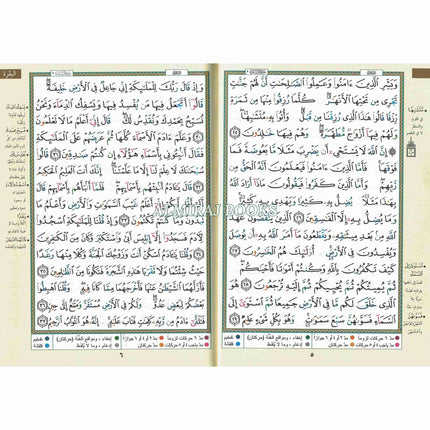 البقرة
وبشر الذين ءامنوا وعملوا الصلحت أن لهم جنت
تجرى من تحتها الأنهر كلما رزقوا منها من ثمرة
رزقا قالوا هذا الذى رزقنا من قبل وأتوا به متشبها
ولهم فيها أزوج مطهرة وهم فيها خلدون ٢٥
إن الله لا يستحى أن يضرب مثلا ما بعوضة فما فوقها
فأما الذين ءامنوا فيعلمون أنه الحق من
ربهم وأما الذين كفروا فيقولون ماذا أراد
الله بهذا مثلا يضل به كثيرا ويهدى به كثيرا
وما يضل به إلا الفسقين ٢٦ الذين ينقضون عهد
الله من بعد ميثقه ويقطعون ما أمر الله به أن يوصل
ويفسدون فى الأرض أولئك هم الخسرون ٢٧
كيف تكفرون بالله وكنتم أموتا فأحيكم
ثم يميتكم ثم يحييكم ثم إليه ترجعون ٢٨ هو
الذى خلق لكم ما فى الأرض جميعا ثم استوى إلى
السماء فسوىهن سبع سموت وهو بكل شىء عليم ٢٩
٥
وإذ قال ربك للملئكة إنى جاعل فى الأرض خليفة
قالوا أتجعل فيها من يفسد فيها ويسفك الدماء ونحن
نسبح بحمدك ونقدس لك قال إنى أعلم ما لا تعلمون ٣٠
وعلم ءادم الأسماء كلها ثم عرضهم على الملئكة
فقال أنبئونى بأسماء هؤلاء إن كنتم صدقين ٣١ قالوا
سبحنك لا علم لنا إلا ما علمتنا إنك أنت العليم الحكيم ٣٢
قال يئادم أنبئهم بأسمائهم فلما أنبأهم بأسمائهم قال
ألم أقل لكم إنى أعلم غيب السموت والأرض وأعلم ما
تبدون وما كنتم تكتمون ٣٣ وإذ قلنا للملئكة اسجدوا
لءادم فسجدوا إلا إبليس أبى واستكبر وكان من الكفرين ٣٤
وقلنا يئادم اسكن أنت وزوجك الجنة وكلا منها رغدا
حيث شئتما ولا تقربا هذه الشجرة فتكونا من الظلمين ٣٥
فأزلهما الشيطن عنها فأخرجهما مما كانا فيه وقلنا اهبطوا
بعضكم لبعض عدو ولكم فى الأرض مستقر ومتع إلى حين ٣٦
فتلقى ءادم من ربه كلمت فتاب عليه إنه هو التواب الرحيم ٣٧
٦
AL-MIRAJ BOOKS